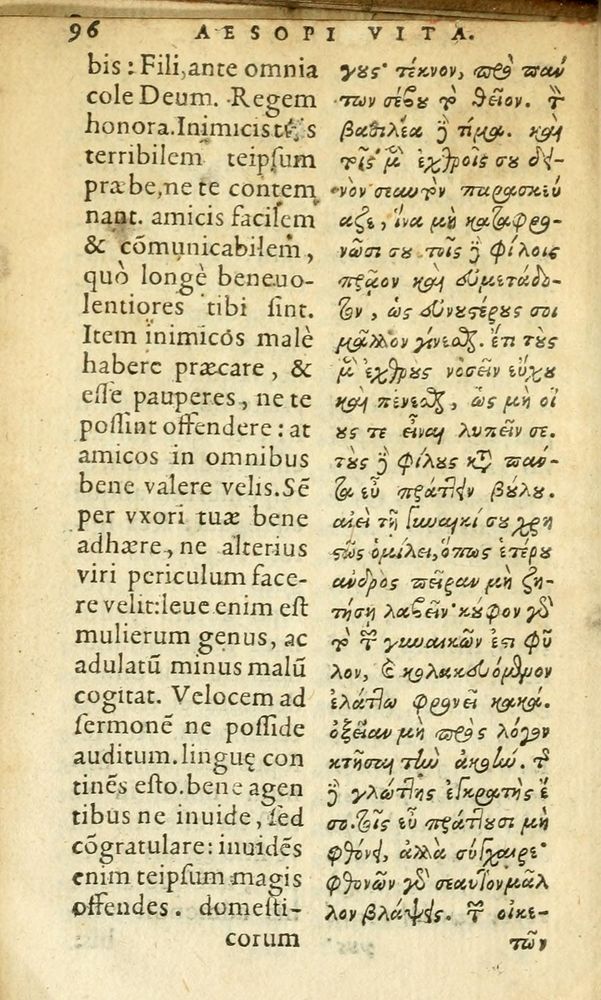 96 AESOPI VITA.
bis: Fili, ante omnia
cole Deum. Regem
honora. Inimicis
terribilem teipsum
præbe, ne te contem
nant. amicis facilem
& cõmunicabilem,
quò longè beneuo-
lentiores tibi sint.
Item inimicos malè
habere præcare, &
esse pauperes, ne te
possint offendere: at
amicos in omnibus
bene valere velis. Sẽ
per vxori tuæ bene
adhære, ne alterius
viri periculum face-
re velit: leue enim est
mulierum genus, ac
adulatũ minus malũ
cogitat. Velocem ad
sermonẽ ne posside
auditum. linguę con
tinẽs esto. bene agen
tibus ne inuide, sed
cõgratulare: inuidẽs
enim teipsum magis
offendes. domesti-
corum
γους· τέκνον, πρὸ παν
των σέβου τὸ θεῖον. τὸν
βασιλέα δὲ τίμα. καὶ
τοῖς μὲν ἐχθροῖς σου δει-
νὸν σεαυτὸν παρασκεύ
αζε, ἵνα μὴ καταφρο-
νῶσί σου. τοῖς δὲ φίλοις
πρᾶον καὶ εὐμετάδο-
τον, ὡς εὐνουστέρους σοι
μᾶλλον γίνεσθαι. ἔτι τοὺς
μὲν ἐχθροὺς νοσεῖν εὔχου
καὶ πένεσθαι, ὡς μὴ οἵ
ους τε εἶναι λυπεῖν σε.
τοὺς δὲ φίλους κατὰ πάν-
τα εὖ πράττειν βούλου.
αἰεὶ τῇ γυναικί σου χρη
στῶς ὁμίλει, ὅπως ἑτέρου
ανδρὸς πεῖραν μὴ ζη-
τήσῃ λαβεῖν· κοῦφον γὰρ
τὸ τῶν γυναικῶν ἐστι φῦ
λον, καὶ κολακευόμενον
ἐλάττω φρονεῖ κακά.
ὀξεῖαν μὴ πρὸς λόγον
κτήσῃ τὴν ἀκοήν. τῆς
δὲ γλώττης ἐγκρατὴς ἔ
σο. τοῖς εὖ πράττουσι μὴ
φθόνει, ἀλλὰ σύγχαιρε·
φθονῶν γὰρ σεαυτὸν μᾶλ
λον βλάψεις. τῶν οἰκε-
τῶν